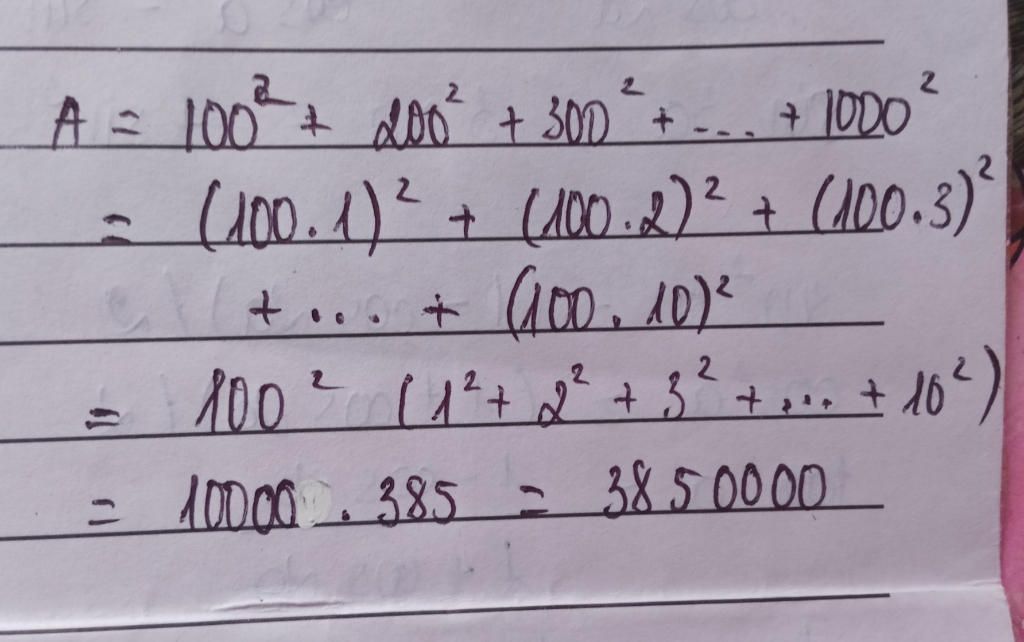 A = 100² + 200² + 300² + ... + 1000²
= (100.1)² + (100.2)² + (100.3)²
+ ... + (100.10)²
= 100² (1² + 2² + 3² + ... + 10²)
= 10000 . 385 = 3850000